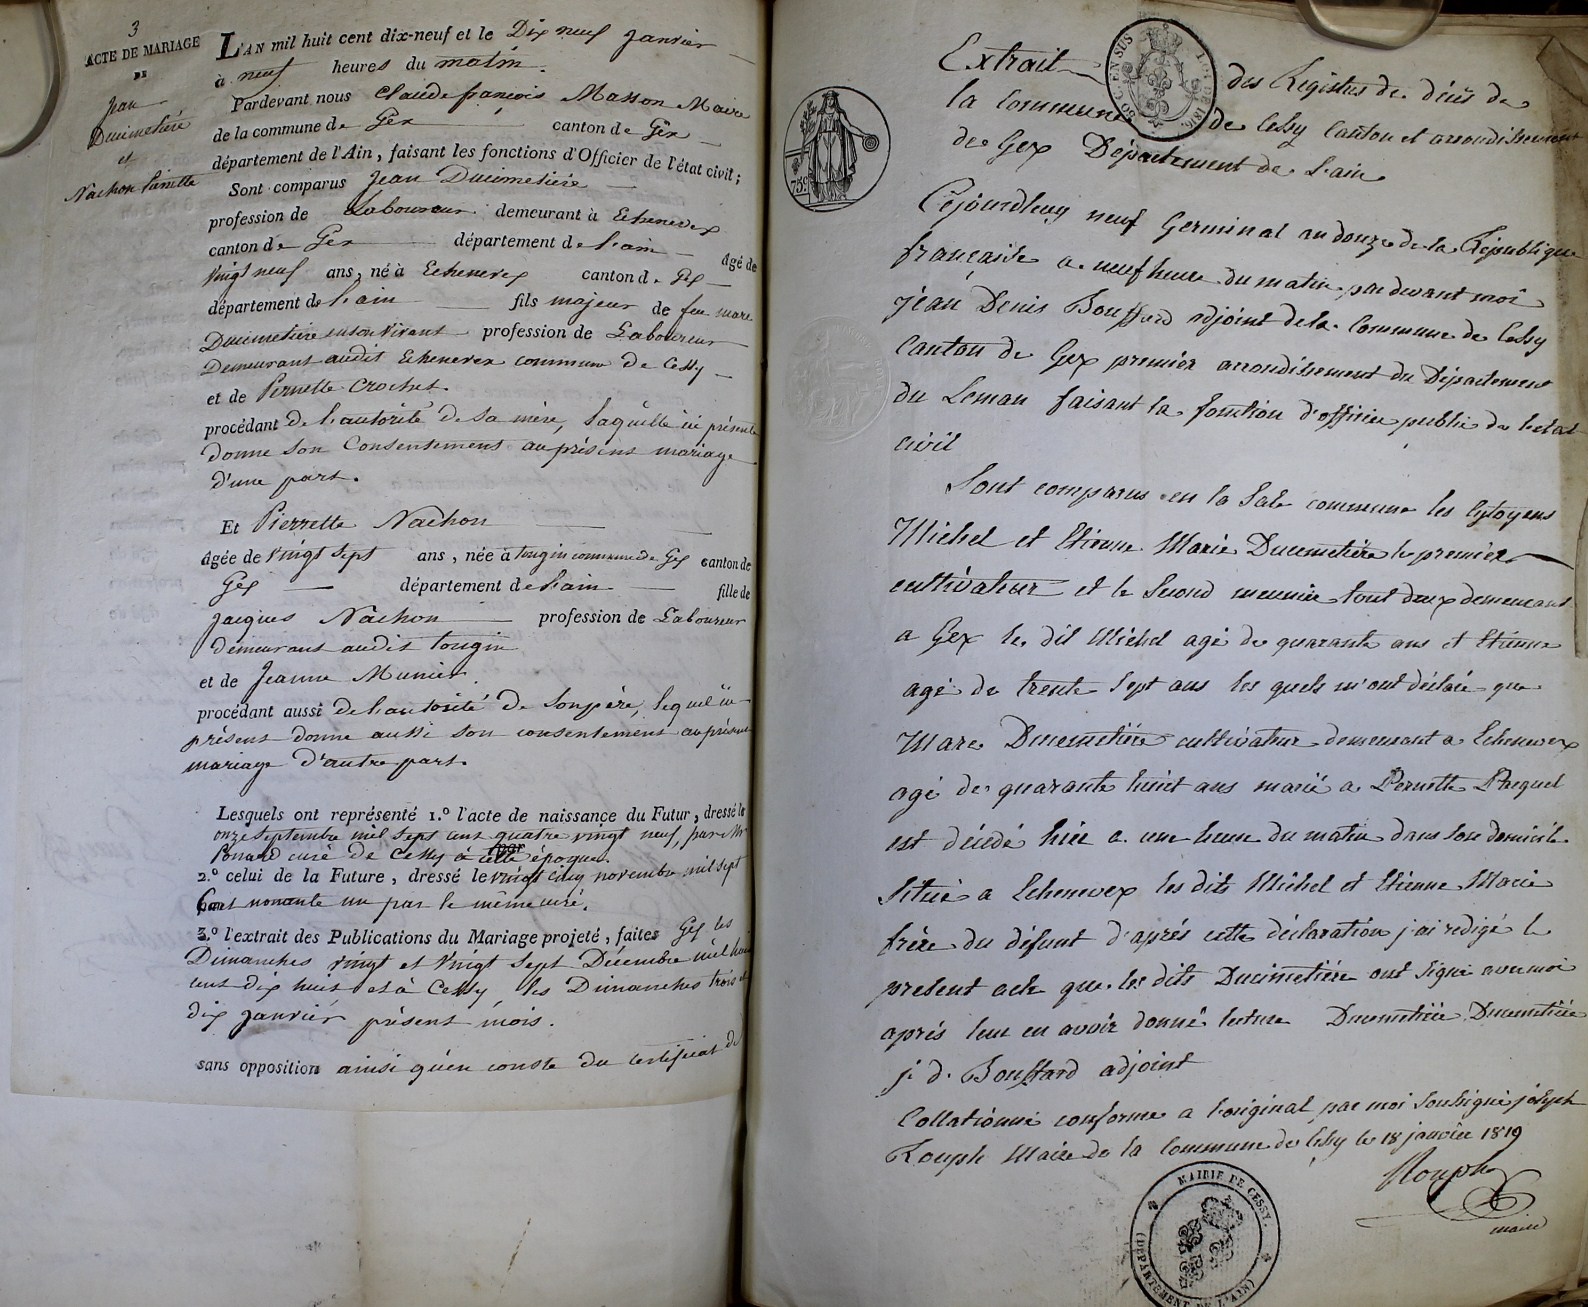 3
ACTE DE MARIAGE
DE
Jean
Ducimetière
et
Nachon Pierrette
L'AN mil huit cent dix-neuf et le Dix neuf Janvier
à neuf heures du matin.
Pardevant nous Claude françois Masson Maire
de la commune de Gex canton de Gex
département de l'Ain, faisant les fonctions d'Officier de l'état civil;
Sont comparus Jean Ducimetière
profession de Laboureur demeurant à Echenevex
canton de Gex département de l'ain âgé de
vingt neuf ans, né à Echenevex canton de Gex
département de l'ain fils majeur de feu marc
Ducimetière vivant profession de Laboureur
Demeurant audit Echenevex commune de Cessy
et de Pernette Crochet
procédant de l'autorité de sa mère, laquelle ici présente
donne son Consentement au présent mariage
d'une part.
Et Pierrette Nachon
âgée de vingt sept ans, née à tougin commune de Gex canton de
Gex département de l'ain fille de
Jacques Nachon profession de Laboureur
demeurant audit tougin
et de Jeanne Munier
procédant aussi de l'autorité de son père, lequel ici
présent donne aussi son consentement au présent
mariage d'autre part.
Lesquels ont représenté 1.º l'acte de naissance du Futur, dressé le
onze Septembre mil sept cent quatre vingt neuf, par Mr
curé de Cessy à cette époque.
2.º celui de la Future, dressé le vingt cinq novembre mil sept
Cent nonante un par le même curé.
3.º l'extrait des Publications du Mariage projeté, faites Gex les
Dimanches vingt et vingt sept Décembre mil huit
cent dix huit et à Cessy les Dimanches trois et
dix Janvier présent mois.
sans opposition ainsi qu'en conste du certificat de
Extrait des Registres de décès de
la Commune de Cessy Canton et arrondissement
de Gex Département de l'ain
75c
Cejourdhuy neuf Germinal an douze de la République
française a neuf heure du matin par devant moi
jean Denis Bouffard adjoint de la Commune de Cessy
Canton de Gex premier arrondissement du Département
du Leman faisant la fonction d'officier public de l'etat
civil
Sont comparus en la Sale commune les Cytoyens
Michel et Etienne Marie Ducimetière le premier
cultivateur et le Second meunier tout deux demeurant
a Gex le dit Michel agé de quarante ans et Etienne
agé de trente Sept ans les quels m'ont déclaré que
Marc Ducimetière cultivateur demeurant a Echenevex
agé de quarante huit ans marié a Pernette
est décédé hier a une heure du matin dans son domicile
Situé a Echenevex les dits Michel et Etienne Marie
frère du défunt d'après cette déclaration j'ai rédigé le
présent acte que les dits Ducimetière ont Signé avec moi
après leur en avoir donné lecture Ducimetière Ducimetière
j. d. Bouffard adjoint
Collationné conforme a l'original par moi Soussigné joseph
Rouph Maire de la Commune de Cessy le 18 janvier 1819
Rouph
maire
MAIRIE DE CESSY.
(DÉPARTEMENT DE L'AIN)